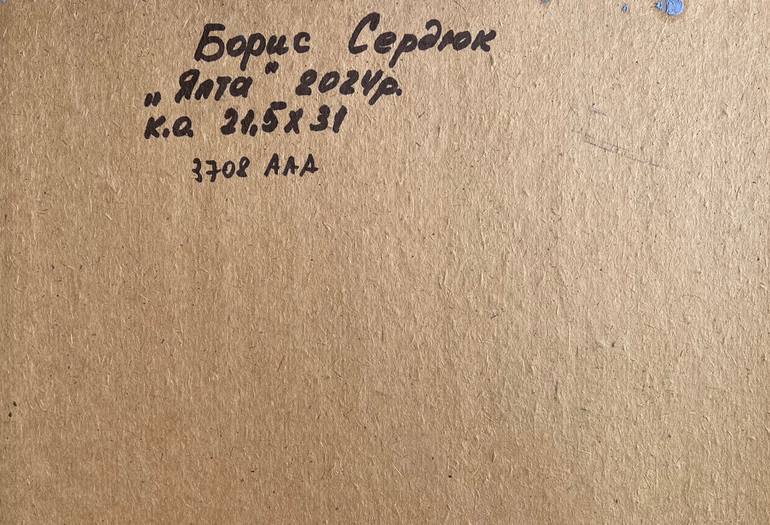 Борис Сердюк
„Ялта" 2024р.
к.о. 21,5 х 31
3708 ААА